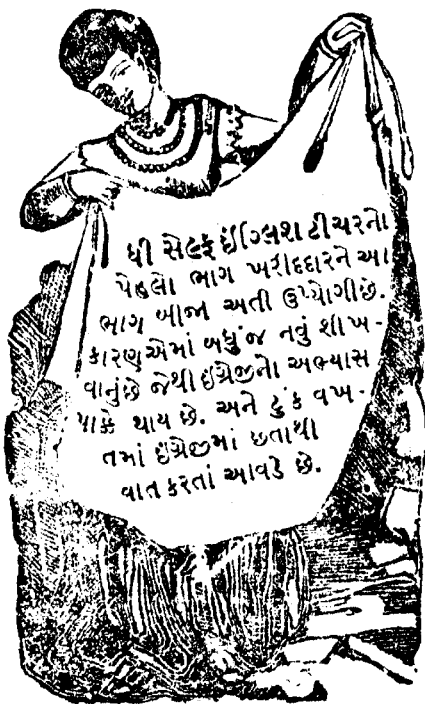 ધી સેલ્ફ ઈંગ્લિશ ટીચરનો
પેહલો ભાગ ખરીદદારને આ
ભાગ બીજા અતી ઉપ્યોગી છે.
કારણ એમાં બધુંજ નવું શીખ-
વાનું છે જેથી ઇંગ્રેજીનો અભ્યાસ
પાકો થાય છે. અને ટુંક વખ-
તમાં ઇંગ્રેજીમાં છતાથી
વાત કરતાં આવડે છે.